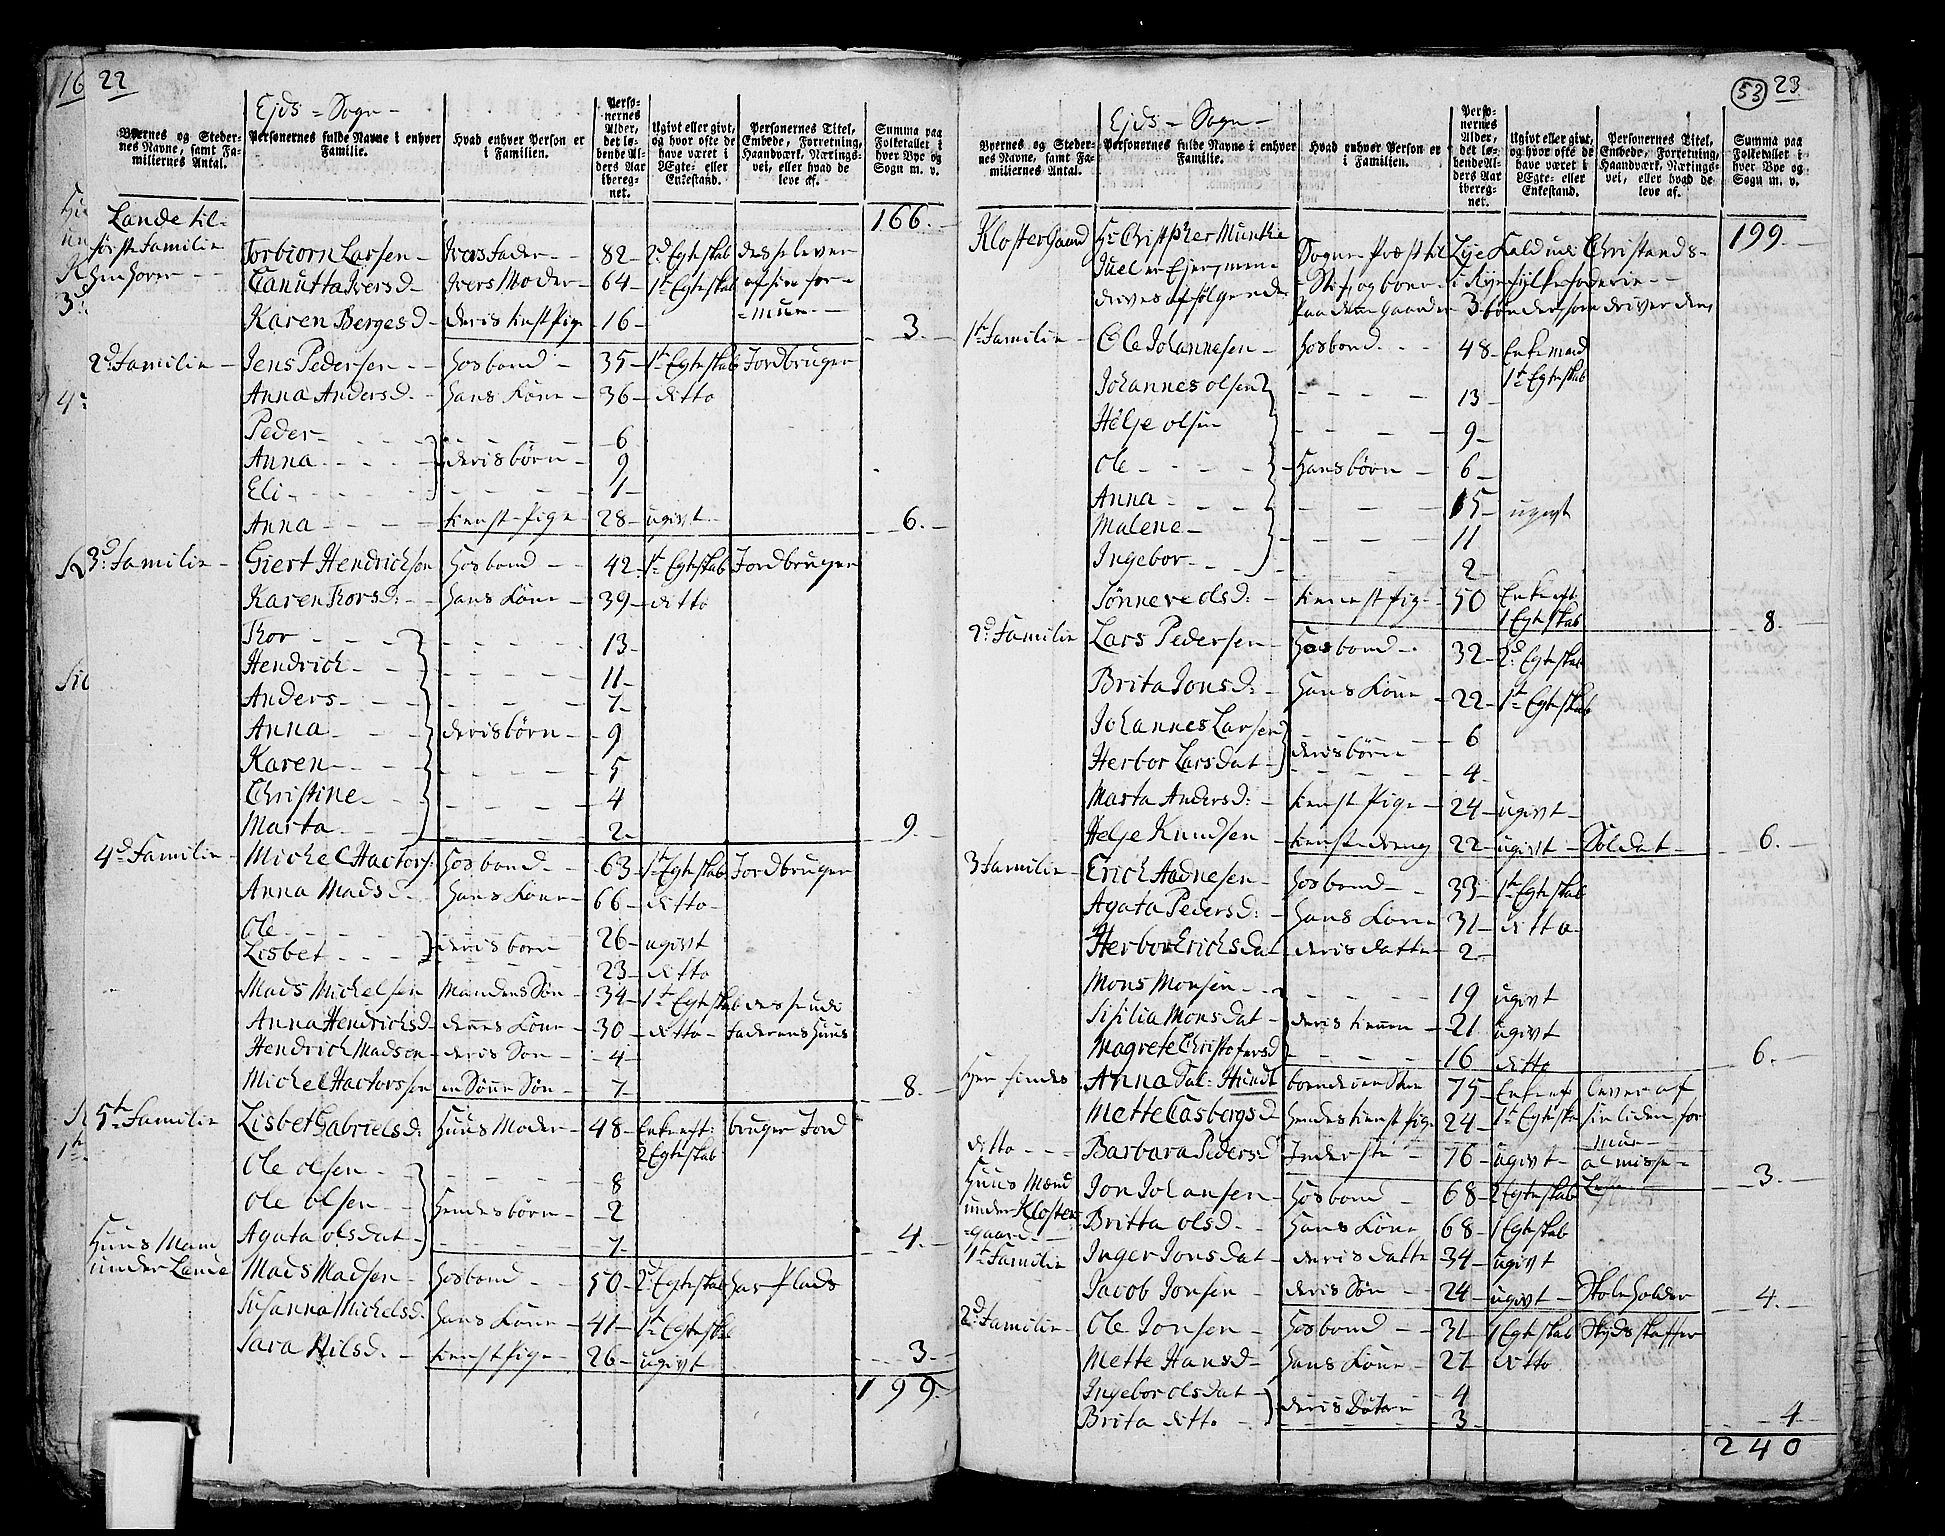 16 22
Ejds - Sogn -
Byernes og Stedernes Navne, samt Familiernes Antal. Personernes fulde Navne i enhver Familie. Hvad enhver Person er i Familien. Personernes Alder, det løbende Alders Aar iberegnet. Ugivt eller givt, og hvor ofte de have været i Ægte- eller Enkestand. Personernes Titel, Embede, Forretning, Haandværk, Næringsvei, eller hvad de leve af. Summa paa Folketallet i hver Bye og Sogn m. v.
Lande til- 166.-
første Familie Torbiorn Larsen - Ivers Fader - 82 - 2d Egteskab
henhører - - Canutta Ivers d. Ivers Moder - 64 - 1te Egteskab
Karen Berges d - deris tienst Pige - 16 - 3.
2d Familie - Jens Pedersen - - Hosbond - 35 - 1te Egteskab Jordbruger
Anna Anders d. - hans Kone - 36 - ditto
Peder - - - - - 6
Anna - - - - deris børn - 9
Eli - - - - - 1 -
Anna - - - - tienst Pige - 28 - ugivt - 6.-
3d Familie - Giert Hendrichsen Hosbond - 42 - 1te Egteskab Jordbruger
Karen Tors d: - hans Kone - 39 - ditto
Tor - - - - 13 -
Hendrich - - - 11 -
Anders - - - 7 -
Anna - - - deris børn - 9
Karen - - - 5
Christine - - 4
Marta - - - 2 - 9.-
4d Familie - Michel Hactors: Hosbond - 63 - 1te Egteskab Jordbruger
Anna Mads d. - hans Kone - 66 - ditto -
Ole - - - - 26 - ugivt
Lisbet - - - deris born - 23 - ditto
Mads Michelsen Mandens Søn - 34 - 1te Egteskab
Anna Hendrichs d - dennes Kone - 30 - ditto - Faderens Huus
Hendrich Madsen - deris Søn - 4 -
Michel Hactorssen en Sønne Søn - 7 - 8.-
5te Familie Lisbet Gabriels d: Huus Moder - 48 - Enke eft: bruger Jord
2 Egteskab
Ole olsen - - 8
Ole olsen - - Hendes børn - 2
Agata olsdat - - 7 - 4.-
Huus Mænd
under Lande Mads Madsen - Hosbond - 50 - 2d Egteskab har Plads
Susanna Michels d. hans Kone - 41 - 1te Egteskab
Sara Nils d. - tienst Pige - 26 - ugivt 3.-
199.-
53 23
Ejds - Sogn -
Byernes og Stedernes Navne, samt Familiernes Antal. Personernes fulde Navne i enhver Familie. Hvad enhver Person er i Familien. Personernes Alder, det løbende Alders Aar iberegnet. Ugivt eller givt, og hvor ofte de have været i Ægte- eller Enkestand. Personernes Titel, Embede, Forretning, Haandværk, Næringsvei, eller hvad de leve af. Summa paa Folketallet i hver Bye og Sogn m. v.
Klostergaard Hr Christpher Munthe Sogne Præst til Lye Kald udi Christands- 199.-
Juel er Ejer, men - Stift, og boer i
drives af følgende paa denne gaard er 3 bønder som driver den,
1te Familie Ole Johannesen - Hosbond - - 48 - Enkemand
1te Egteskab
Johannes olsen - - - 13 -
Helje olsen - - - 9 -
Ole - - - - Hans børn - 6 -
Anna - - - - 15 - ugivt
Malene - - - 11
Ingebor - - - 2 -
Sønneve ols d: - tienest Pige - 50 Enke eft:
1 Egteskab - 8.-
2d Familie Lars Pedersen - Hosbond - 32 - 2d Egteskab
Brita Jons d: - hans Kone - 22 - 1te Egteskab
Johannes Larsen - 6
Herbor Larsdat - deris børn - 4 -
Marta Anders d: - tienst Pige - 24 - ugivt -
Helje Knudsen - tieneste dreng 22 - ugivt - Soldat - 6.-
3 Familie - Erich Aadnesen - Hosbond - - 33 - 1te Egteskab
Agata Peders d: - hans Kone - 31 - ditto
Herbor Erichsdat deris datter - 2 -
Mons Monsen - - 19 ugivt
Sisilia Monsdat - deris tienere - 21 - ugivt
Magrete Christofers d - 16 ditto 6.-
Her findes Anna Sal: Hundt 75 - Enke ef: lever af
Mette Casbergs d - hendes tienst Pige 24 - 1te Egteska sin liden for
mue -
ditto - - - Barbara Peders d Inderste - 76 - ugivt - almisse -
3.-
Huus Mænd Jon Johansen - Hosbond - 68 - 2 Egteskab
under Kloster Britta ols d. - hans Kone - 68 - 1 Egteskab
-gaard -
1te Familie Inger Jonsdat - deris datter - 34 - ugivt
Jacob Jonsen - deris Søn - 24 - ugivt - Skoleholder 4.-
2d Familie - Ole Jonsen - Hosbond - - 31 - 1 Egteskab Skydsskaffer
Mette Hans d - hans Kone - 27 - ditto
Ingebor olsdat - 4
Brita ditto - deris Døtere - 3 - 4 -
240